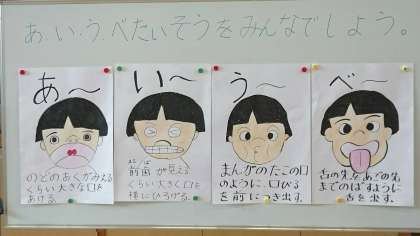 あ、い、う、べたいそうをみんなでしよう。
あ～
のどのおくがみえる
くらい大きな口を
あける。
い～
まえば
前歯が見える
くらい大きく口を
横にひろげる。
う～
まんがのたこの口
のように、口びる
を前につき出す。
べ～
舌の先をあごの先
までのばすように
舌を出す。